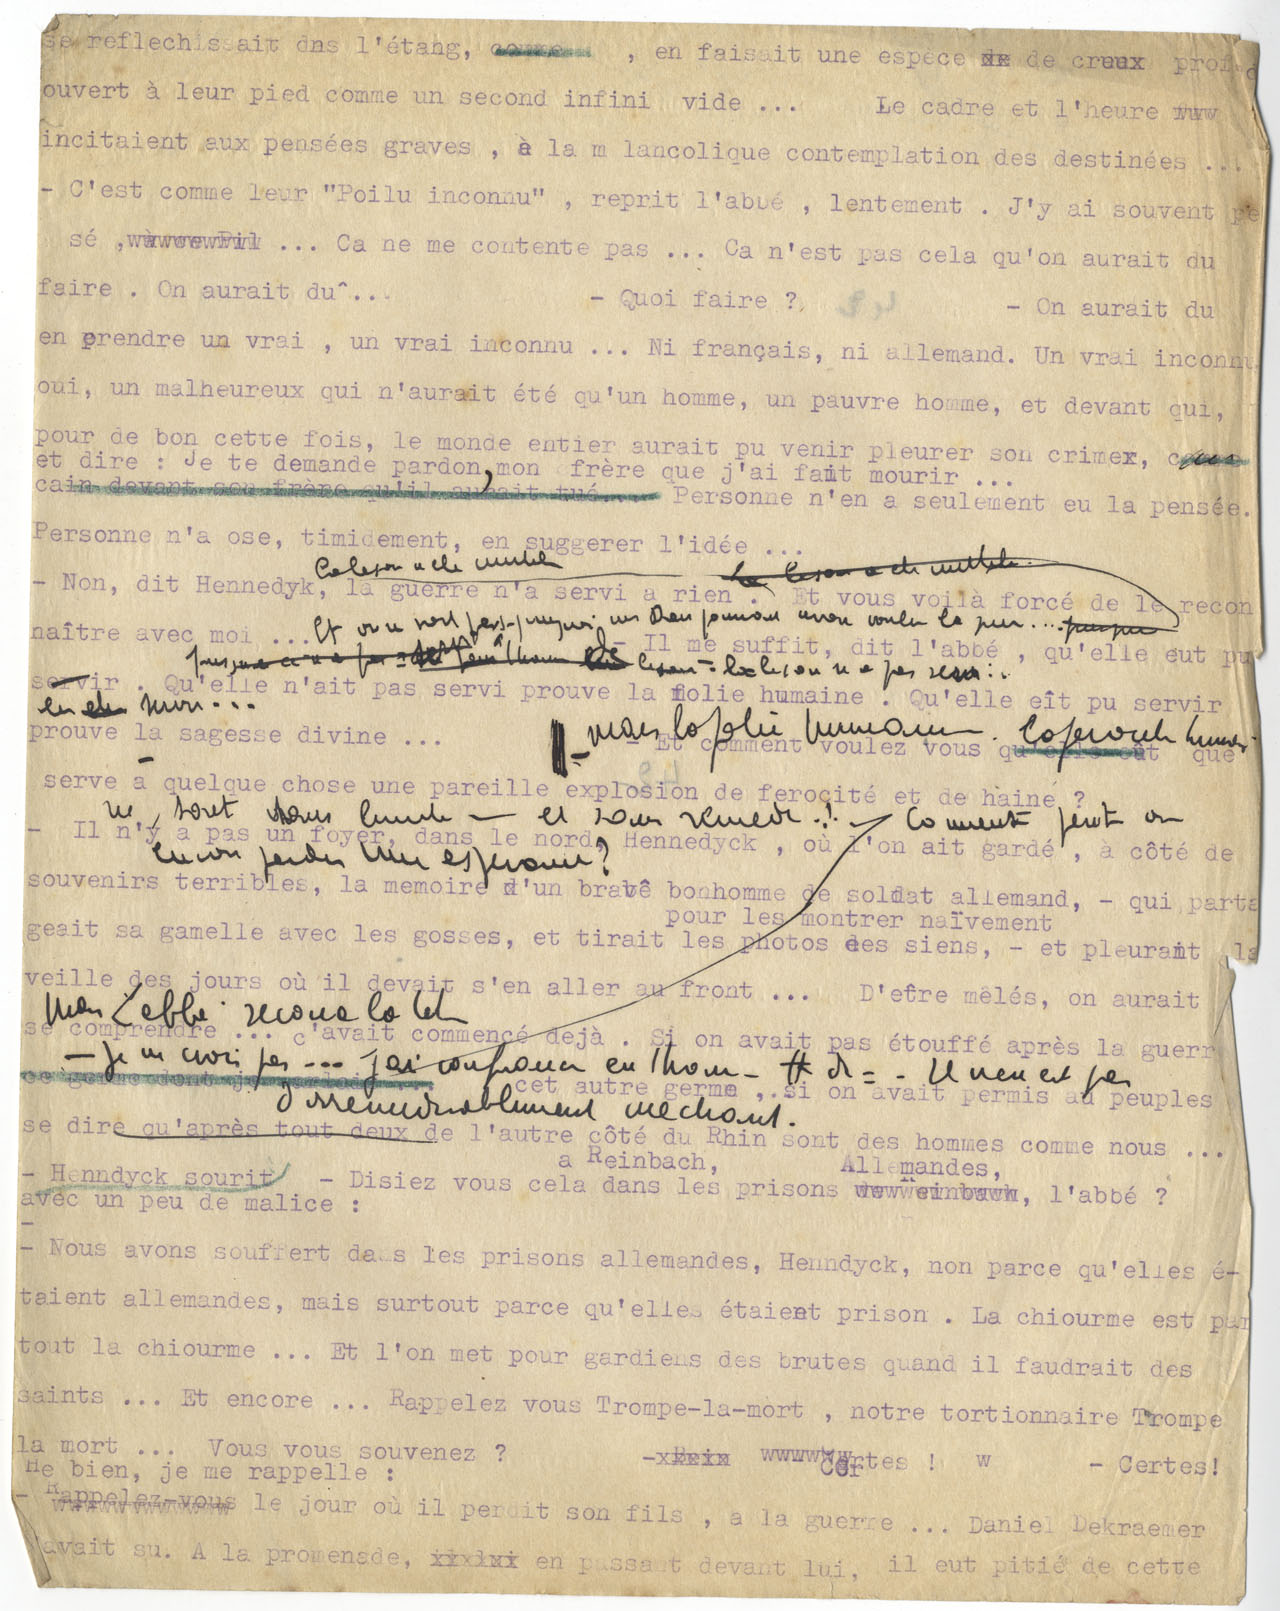 se reflechissait dns l'étang, comme , en faisait une espèce de de creux prof
ouvert à leur pied comme un second infini vide ... Le cadre et l'heure
incitaient aux pensées graves , à la m lancolique contemplation des destinées ...
- C'est comme leur "Poilu inconnu" , reprit l'abbé , lentement . J'y ai souvent pe
sé , ... Ca ne me contente pas ... Ca n'est pas cela qu'on aurait du
faire . On aurait du^... - Quoi faire ? - On aurait du
en prendre un vrai , un vrai inconnu ... Ni français, ni allemand. Un vrai inconnu
oui, un malheureux qui n'aurait été qu'un homme, un pauvre homme, et devant qui,
pour de bon cette fois, le monde entier aurait pu venir pleurer son crime,
et dire : Je te demande pardon, mon frère que j'ai fait mourir ...
cain devant son frère qu'il aurait tué.... Personne n'en a seulement eu la pensée.
Personne n'a ose, timidement, en suggerer l'idée ...
La leçon a été inutile
la leçon a été inutile.
- Non, dit Hennedyk, la guerre n'a servi a rien . Et vous voilà forcé de le recon
naître avec moi ... - Il me suffit, dit l'abbé , qu'elle eut pu
servir . Qu'elle n'ait pas servi prouve la folie humaine . Qu'elle eît pu servir
prouve la sagesse divine ... - Et comment voulez vous qu'elle eût que
- mais la folie humaine.
serve à quelque chose une pareille explosion de ferocité et de haine ?
ne sont sans limite - et sans remède..! - Comment peut on
- Il n'y a pas un foyer, dans le nord, Hennedyck , où l'on ait gardé , à côté de
encore garder une espérance?
souvenirs terribles, la memoire d'un brave bonhomme de soldat allemand, - qui parta
pour les montrer naïvement
geait sa gamelle avec les gosses, et tirait les photos des siens, - et pleurait la
veille des jours où il devait s'en aller au front ... D'être mêlés, on aurait
Mais l'abbé secoua la tête
se comprendre ... c'avait commencé dejà . Si on avait pas étouffé après la guerr
- Je ne crois pas ... j'ai confiance en l'hom- # dk= - Il n'en est pas
ce germe dont je parlais ... cet autre germe , si on avait permis au peuples
d'irrémédiablement méchant.
se dire qu'après tout deux de l'autre côté du Rhin sont des hommes comme nous ...
a Reinbach, Allemandes,
- Henndyck sourit - Disiez vous cela dans les prisons , l'abbé ?
avec un peu de malice :
-
- Nous avons souffert dans les prisons allemandes, Henndyck, non parce qu'elles é-
taient allemandes, mais surtout parce qu'elles étaient prison . La chiourme est par
tout la chiourme ... Et l'on met pour gardiens des brutes quand il faudrait des
saints ... Et encore ... Rappelez vous Trompe-la-mort , notre tortionnaire Trompe
la mort ... Vous vous souvenez ? Certes ! w - Certes!
He bien, je me rappelle :
- Rappelez-vous le jour où il perdit son fils , a la guerre ... Daniel Dekraemer
avait su. A la promenade, en passant devant lui, il eut pitié de cette